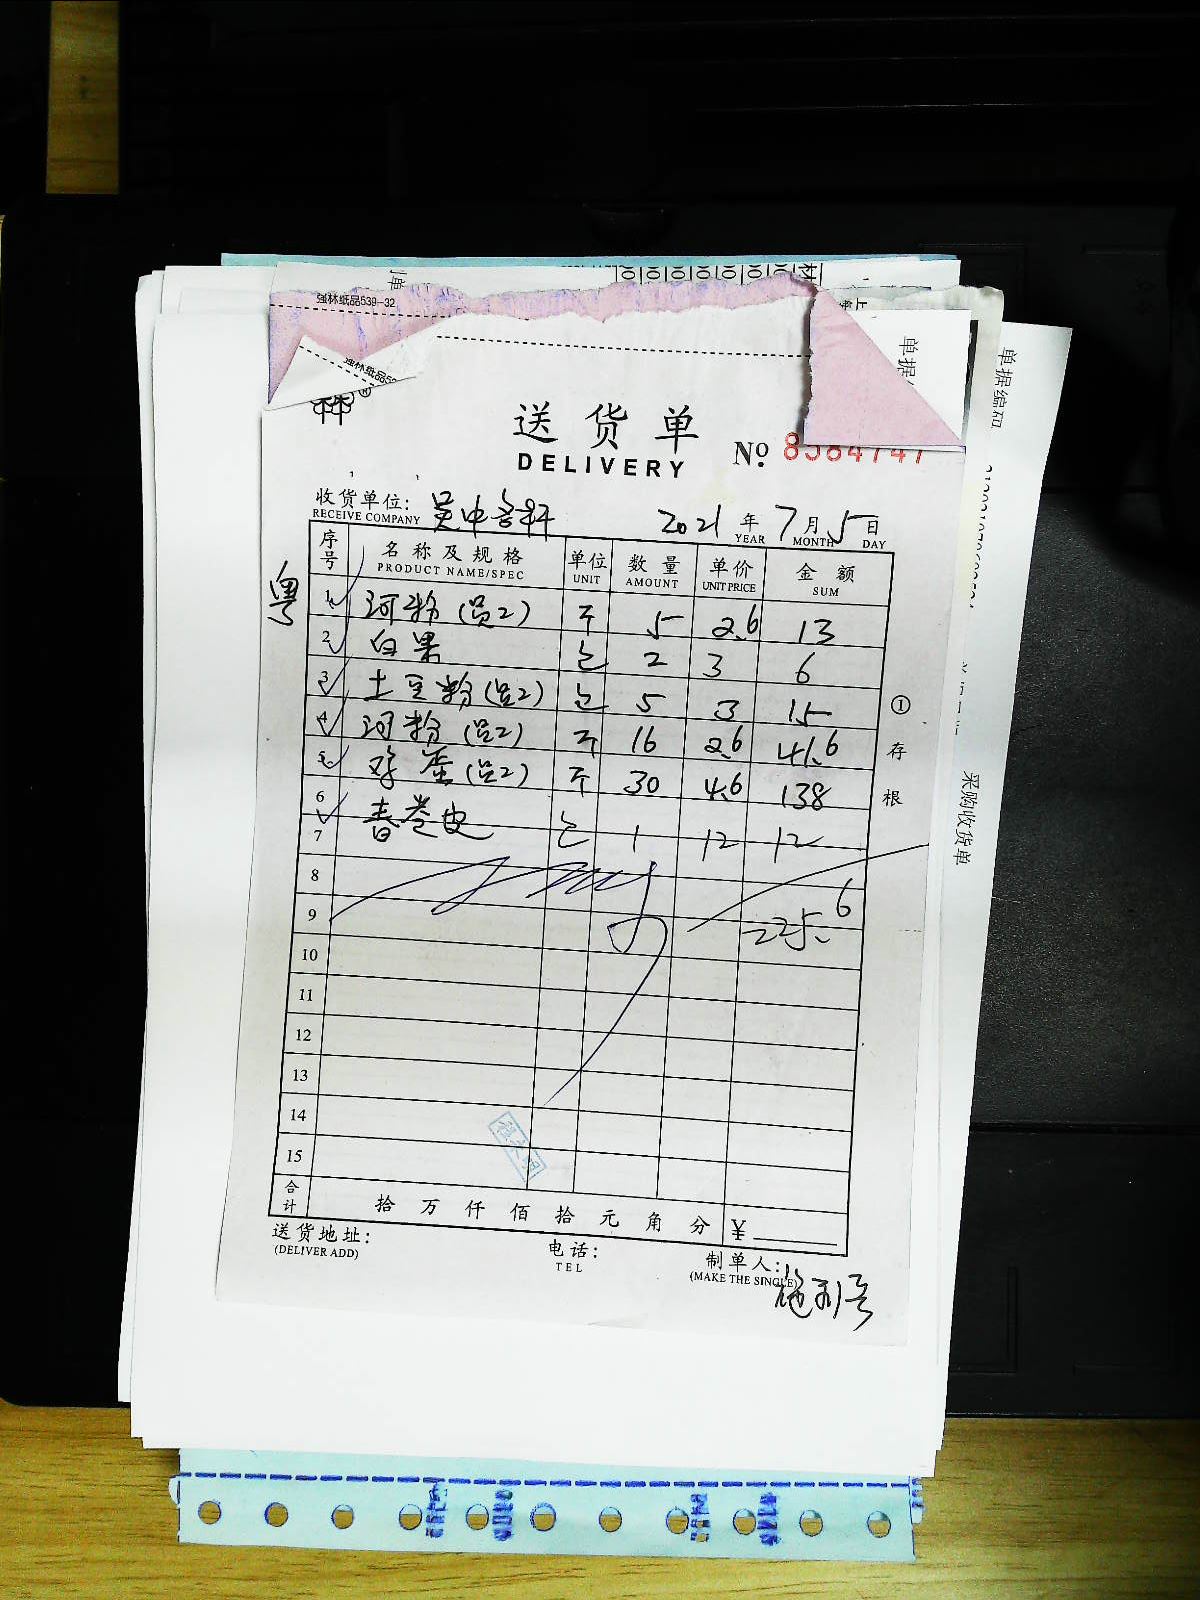 强林纸品539-32
强林纸品53
送货单
DELIVERY
No. 8584747
收货单位: 吴中名轩
RECEIVE COMPANY
2021 年 7 月 5 日
YEAR MONTH DAY
粤
序号 名称及规格 单位 数量 单价 金额
PRODUCT NAME/SPEC UNIT AMOUNT UNIT PRICE SUM
1 河粉(员2) 斤 5 2.6 13
2 白果 包 2 3 6
3 土豆粉(员2) 包 5 3 15
4 河粉(员2) 斤 16 2.6 41.6
5 鸡蛋(员2) 斤 30 4.6 138
6 春卷皮 包 1 12 12
7
8
9 225.6
10
11
12
13
14
15
合计 拾 万 仟 佰 拾 元 角 分 ¥
送货地址:
(DELIVER ADD)
电话:
TEL
制单人:
(MAKE THE SINGLE)
①存根
单据编码
采购收货单